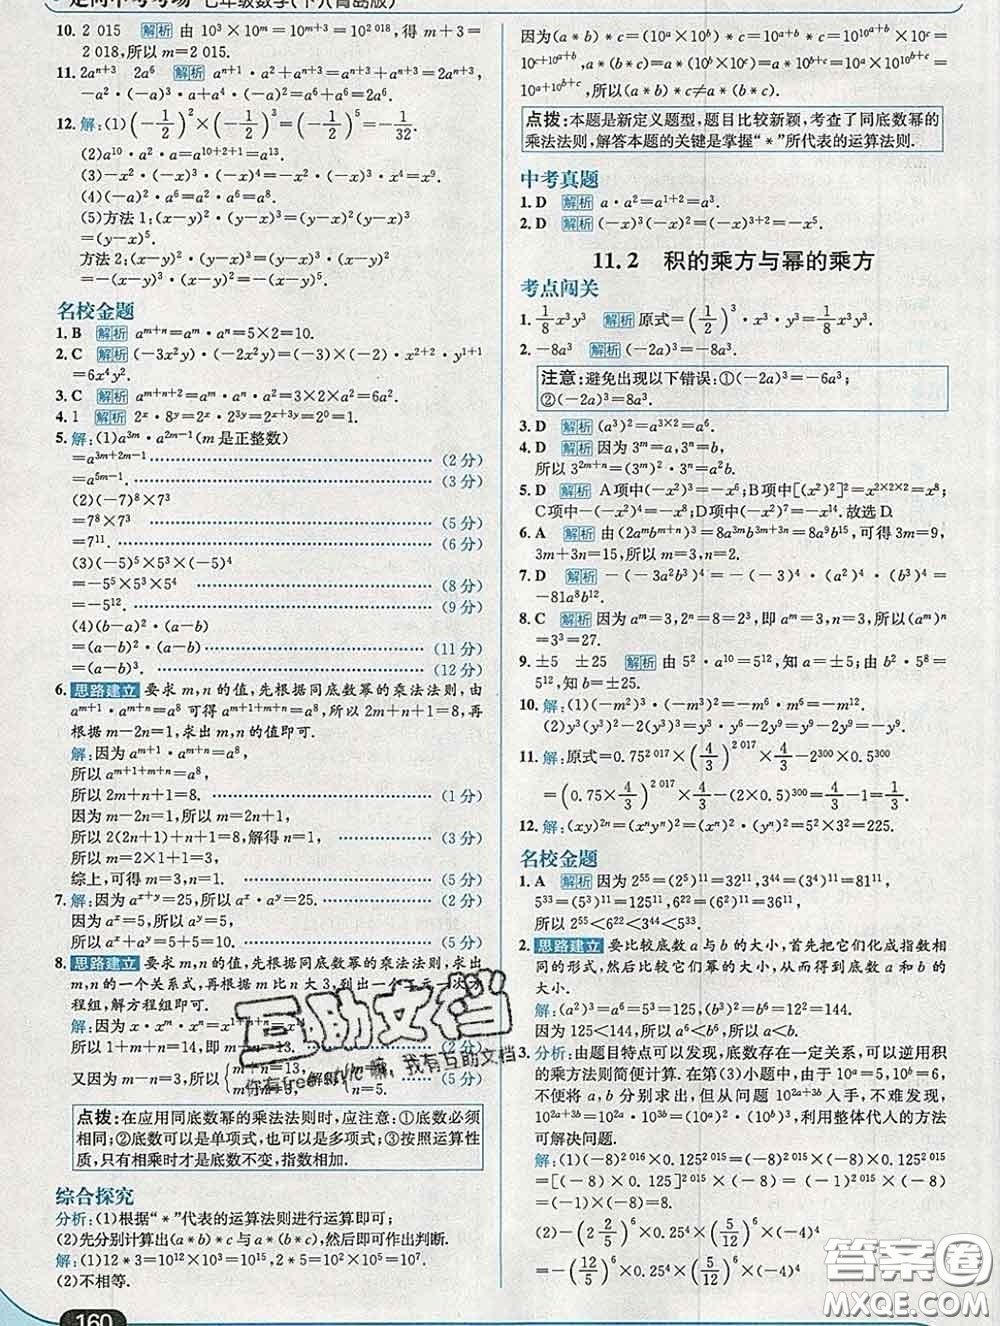 走向中考考场 七年级数学(下)(青岛版)
10. 2 015 解析 由 10³×10ᵐ=10³⁺ᵐ=10² ⁰¹⁸，得 m+3=
2 018,所以 m=2 015.
11. 2aⁿ⁺³ 2a⁶ 解析 aⁿ⁺¹·a²+aⁿ⁺³=aⁿ⁺³+aⁿ⁺³=2aⁿ⁺³,
-a²·(-a)³·a+a⁴·(-a)²=a⁶+a⁶=2a⁶.
12. 解:(1)(-1/2)²×(-1/2)³=(-1/2)⁵=-1/32.
(2)a¹⁰·a²·a=a¹⁰⁺²⁺¹=a¹³.
(3)-x²·(-x)³·(-x)⁴=-x²·(-x³)·x⁴=x⁹.
(5)方法 1:(x-y)²·(y-x)³=(y-x)²(y-x)³
=(y-x)⁵.
方法 2:(x-y)²·(y-x)³=(x-y)²·[-(x-y)³]
=-(x-y)⁵.
名校金题
1. B 解析 aᵐ⁺ⁿ=aᵐ·aⁿ=5×2=10.
2. C 解析 (-3x²y)·(-2x²y)=(-3)×(-2)·x²⁺²·y¹⁺¹
=6x⁴y².
3. C 解析 aᵐ⁺ⁿ⁺²=aᵐ·aⁿ·a²=3×2×a²=6a².
4. 1 解析 2ˣ·8ʸ=2ˣ·2³ʸ=2ˣ⁺³ʸ=2⁰=1.
5. 解:(1)a³ᵐ·a²ᵐ⁻¹(m 是正整数)
=a³ᵐ⁺²ᵐ⁻¹ (2 分)
=a⁵ᵐ⁻¹. (3 分)
(2)(-7)⁸×7³
=7⁸×7³ (5 分)
=7¹¹. (6 分)
(3)(-5)⁵×5³×(-5)⁴
=-5⁵×5³×5⁴ (8 分)
=-5¹². (9 分)
(4)(b-a)²·(a-b)
=(a-b)²·(a-b) (11 分)
=(a-b)³. (12 分)
6. 思路建立 要求 m,n 的值,先根据同底数幂的乘法法则,由
aᵐ⁺¹·aᵐ⁺ⁿ=a⁸ 可得 aᵐ⁺¹⁺ᵐ⁺ⁿ=a⁸,所以 2m+n+1=8,再
根据 m-2n=1,求出 m,n 的值即可.
解:因为 aᵐ⁺¹·aᵐ⁺ⁿ=a⁸,
所以 aᵐ⁺¹⁺ᵐ⁺ⁿ=a⁸,
所以 2m+n+1=8. (1 分)
因为 m-2n=1,所以 m=2n+1,
所以 2(2n+1)+n+1=8,解得 n=1, (3 分)
所以 m=2×1+1=3,
综上,可得 m=3,n=1. (5 分)
7. 解:因为 aˣ⁺ʸ=25,所以 aˣ·aʸ=25. (2 分)
因为 aˣ=5,所以 aʸ=5,
所以 aˣ+aʸ=5+5=10. (5 分)
8. 思路建立 要求 m,n 的值,先根据同底数幂的乘法法则,求出
m,n 的一个关系式,再根据 m 比 n 大 3,列出一个二元一次方
程组,解方程组即可.
解:因为 x·xᵐ·xⁿ=x¹⁺ᵐ⁺ⁿ=x¹⁴,
所以 1+m+n=14,即 m+n=13. (2 分)
又因为 m-n=3,所以{m+n=13, m-n=3, 解得{m=8, n=5. (5 分)
点拨:在应用同底数幂的乘法法则时,应注意:①底数必须
相同;②底数可以是单项式,也可以是多项式;③按照运算性
质,只有相乘时才是底数不变,指数相加.
综合探究
分析:(1)根据“*”代表的运算法则进行运算即可;
(2)先分别计算出(a*b)*c 与 a*(b*c),然后即可作出判断.
解:(1)12*3=10¹²×10³=10¹⁵,2*5=10²×10⁵=10⁷.
(2)不相等.
160
因为(a*b)*c=(10ᵃ×10ᵇ)*c=10ᵃ⁺ᵇ*c=10^(10ᵃ⁺ᵇ)×10ᶜ=
10^(10ᵃ⁺ᵇ+c),a*(b*c)=a*(10ᵇ×10ᶜ)=a*10ᵇ⁺ᶜ=10ᵃ×10^(10ᵇ⁺ᶜ)=
10^(a+10ᵇ⁺ᶜ),所以(a*b)*c≠a*(b*c).
点拨:本题是新定义题型,题目比较新颖,考查了同底数幂的
乘法法则,解答本题的关键是掌握“*”所代表的运算法则.
中考真题
1. D 解析 a·a²=a¹⁺²=a³.
2. D 解析 (-x)³(-x)²=(-x)³⁺²=-x⁵.
11.2 积的乘方与幂的乘方
考点闯关
1. 1/8x³y³ 解析 原式=(1/2)³·x³·y³=1/8x³y³.
2. -8a³ 解析 (-2a)³=-8a³.
注意:避免出现以下错误:①(-2a)³=-6a³;
②(-2a)³=8a³.
3. D 解析 (a³)²=a³ˣ²=a⁶.
4. D 解析 因为 3ᵐ=a,3ⁿ=b,
所以 3²ᵐ⁺ⁿ=(3ᵐ)²·3ⁿ=a²b.
5. D 解析 A 项中(-x²)³=-x⁶;B 项中[(x²)²]²=x²ˣ²ˣ²=x⁸;
C 项中-x¹·(-x)³=x⁴;D 项中(-x²)⁷=-x¹⁴.故选 D.
6. A 解析 由(2aᵐbᵐ⁺ⁿ)³=8a³ᵐb³ᵐ⁺³ⁿ=8a⁹b¹⁵,可得 3m=9,
3m+3n=15,所以 m=3,n=2.
7. D 解析 -(-3a²b³)⁴=-(-3)⁴·(a²)⁴·(b³)⁴=
-81a⁸b¹².
8. C 解析 因为 aᵐ=3,2ⁿ=8=2³,即 aᵐ=3,n=3,所以(aᵐ)ⁿ
=3³=27.
9. ±5 ±25 解析 由 5²·a¹⁰=5¹²,知 a=±5;由 a⁶=b³,
知 b=±25.
10. 解:(1)(-m²)³·(-m³)²=-m⁶·m⁶=-m¹².
(2)y³(y³)²-2(y³)³=y³·y⁶-2y⁹=y⁹-2y⁹=-y⁹.
11. 解:原式=0.75² ⁰¹⁷×(4/3)² ⁰¹⁷×4/3-2³⁰⁰×0.5³⁰⁰
=(0.75×4/3)² ⁰¹⁷×4/3-(2×0.5)³⁰⁰=4/3-1=1/3.
12. 解:(xy)²ⁿ=(xⁿyⁿ)²=(xⁿ)²·(yⁿ)²=5²×3²=225.
名校金题
1. A 解析 因为 2⁵⁵=(2⁵)¹¹=32¹¹,3⁴⁴=(3⁴)¹¹=81¹¹,
5³³=(5³)¹¹=125¹¹,6²²=(6²)¹¹=36¹¹,
所以 2⁵⁵<6²²<3⁴⁴<5³³.
2. 思路建立 要比较底数 a 与 b 的大小,首先把它们化成指数相
同的形式,然后比较它们幂的大小,从而得到底数 a 和 b 的
大小.
解:(a²)³=a⁶=5³=125,(b³)²=b⁶=12²=144.
因为 125<144,所以 a⁶<b⁶,所以 a<b.
3. 分析:由题目特点可以发现,底数存在一定关系,可以逆用积
的乘方法则简便计算.在第(3)小题中,由于 10ᵃ=5,10ᵇ=6,
不便将 a,b 分别求出,但从问题 10²ᵃ⁺³ᵇ入手,不难发现,
10²ᵃ⁺³ᵇ=10²ᵃ·10³ᵇ=(10ᵃ)²·(10ᵇ)³,利用整体代入的方法
可解决问题.
解:(1)(-8)² ⁰¹⁶×0.125² ⁰¹⁵=(-8)×(-8)² ⁰¹⁵×0.125² ⁰¹⁵
=[(-8)×0.125]² ⁰¹⁵×(-8)
=(-1)×(-8)=8.
(2)-(2 2/5)⁶×0.25⁴×(5/12)⁶×(-4)⁴
=-(12/5)⁶×0.25⁴×(5/12)⁶×4⁴
互助文档
你有freestyle嘛，我有互助文档
答案圈
MXQE.COM